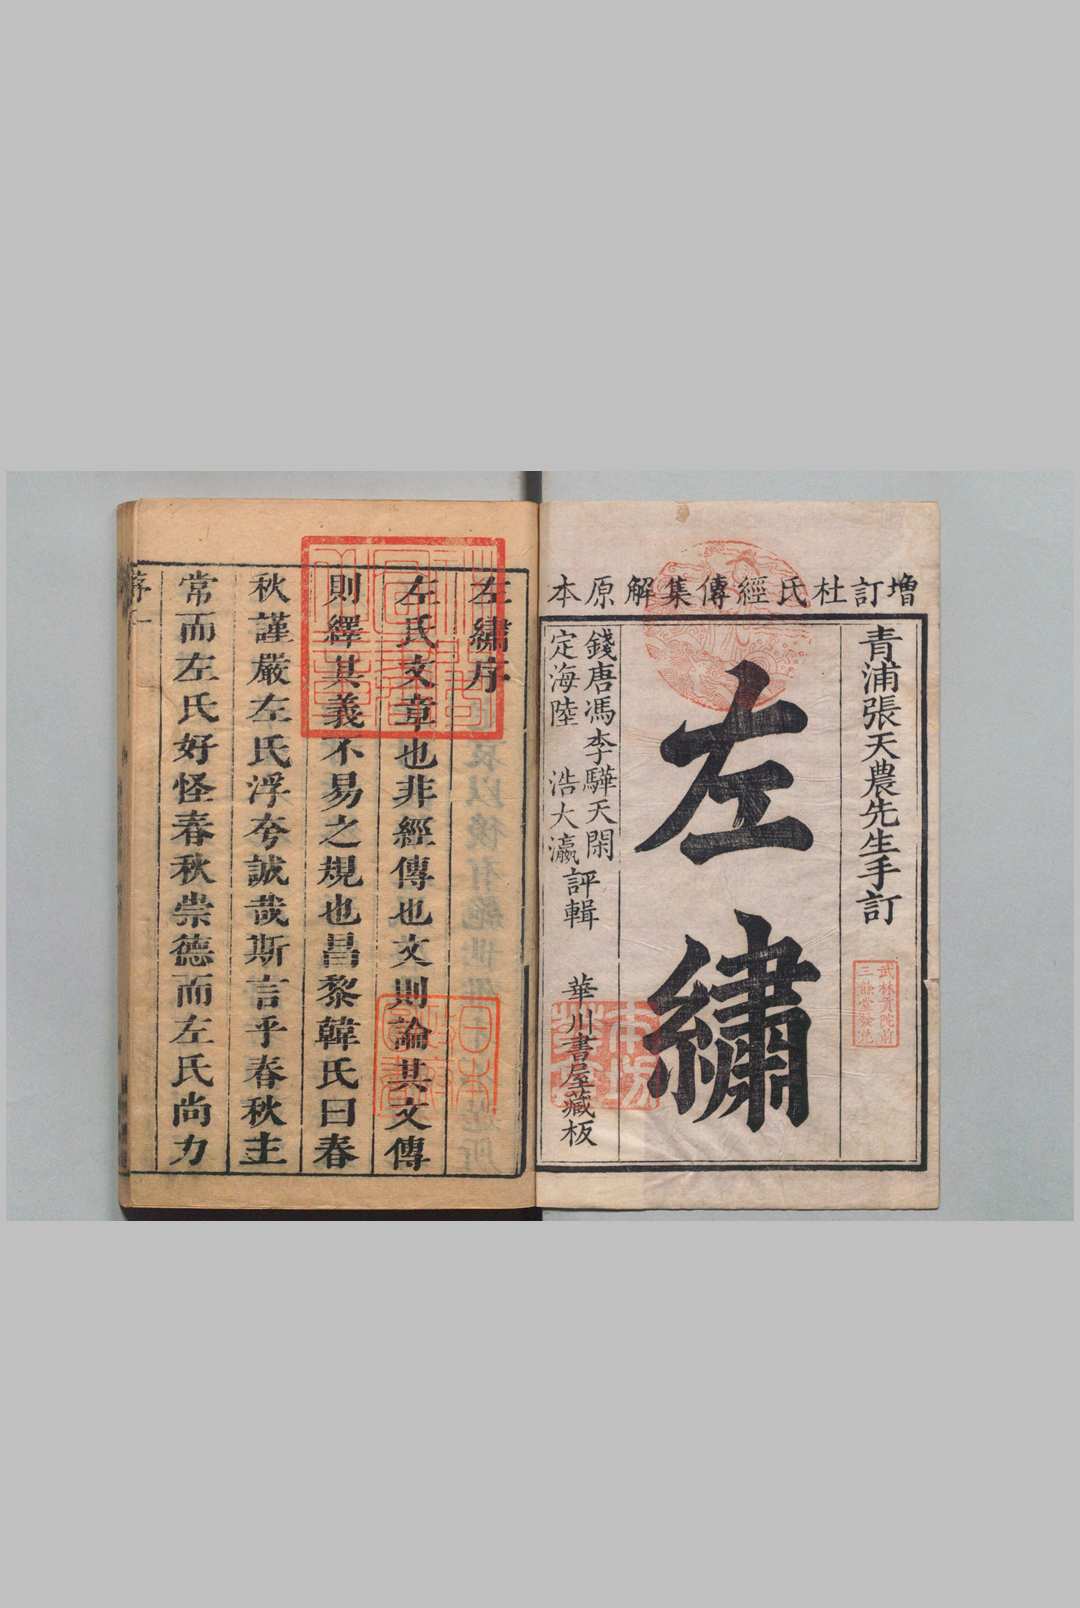 增訂杜氏經傳集解原本
青浦張天農先生手訂
武林貢院前
三餘堂發兌
左繡
錢唐馮李驊天閑
定海陸浩大瀛
評輯
華川書屋藏板
本坊
左繡序
左氏文章也非經傳也文則論其文傳
則繹其義不易之規也昌黎韓氏曰春
秋謹嚴左氏浮夸誠哉斯言乎春秋主
常而左氏好怪春秋崇德而左氏尚力
序一